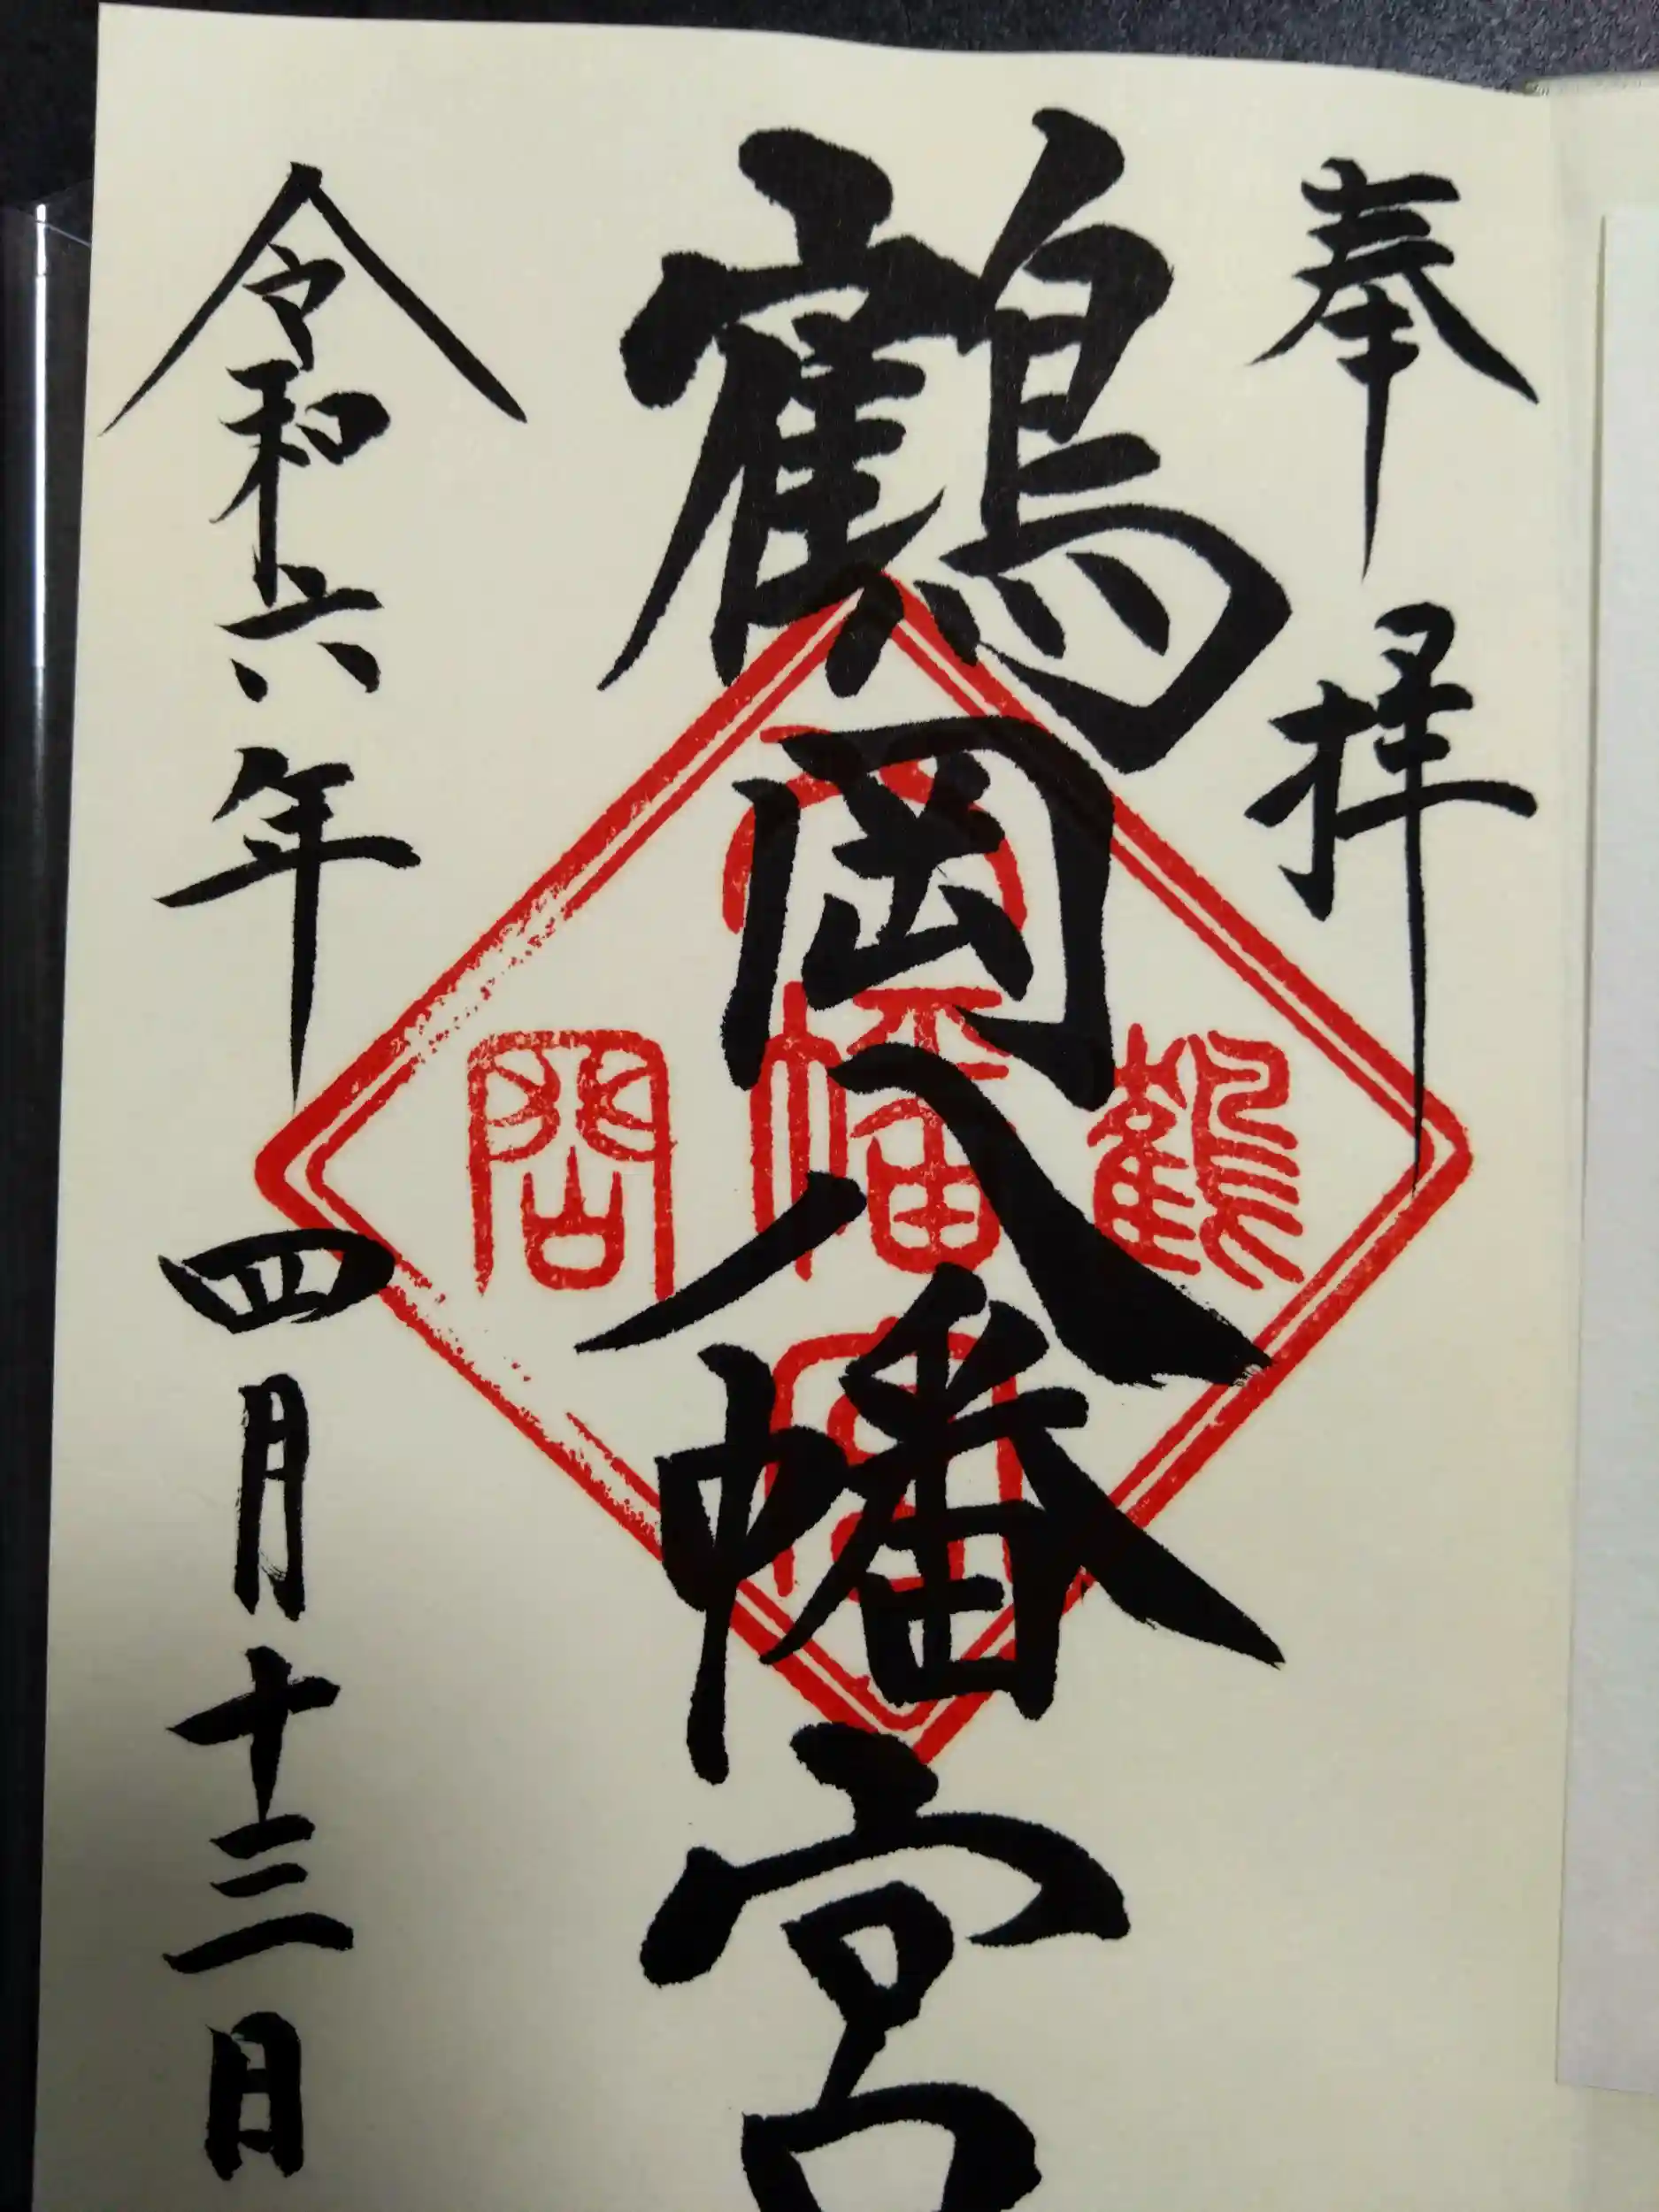 奉拝
鶴岡八幡宮
令和六年四月十三日
八
鶴幡岡
宮